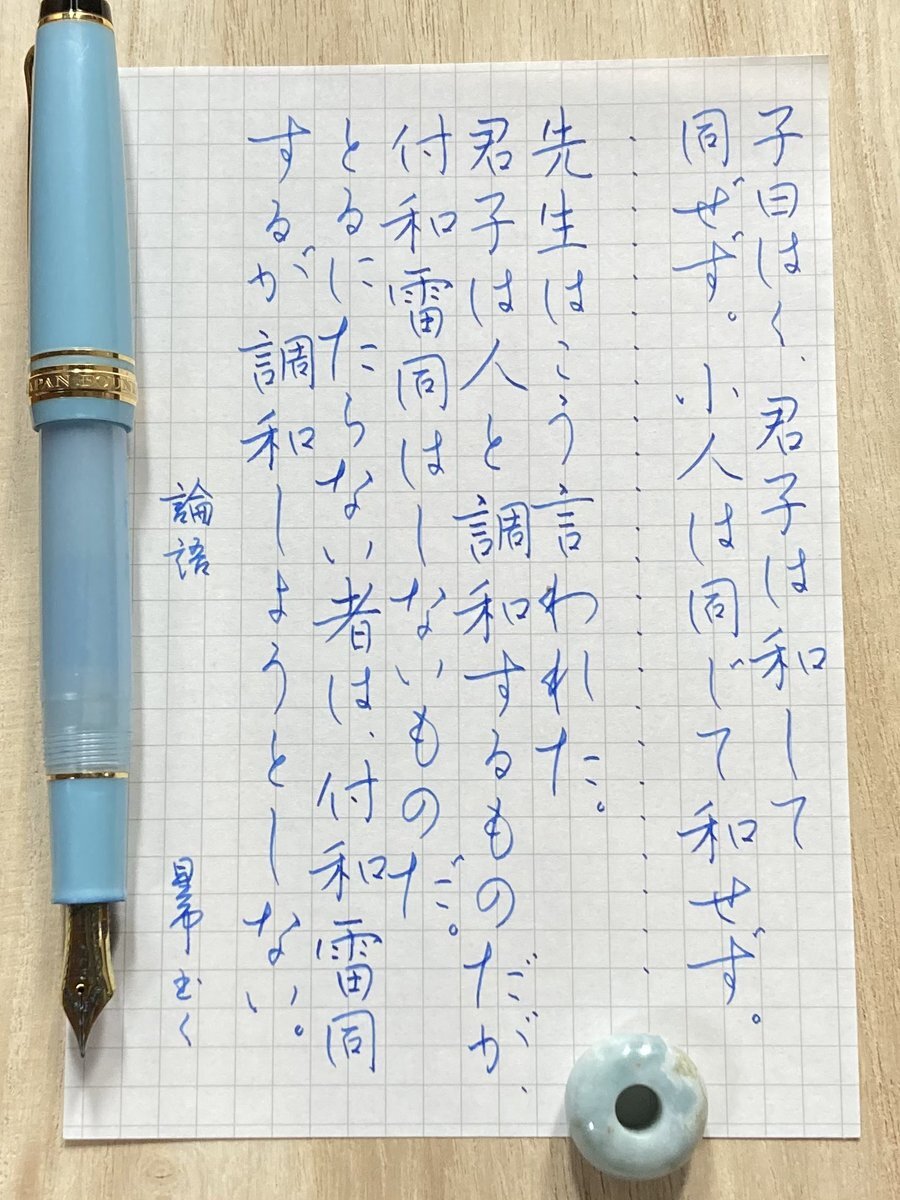 子曰はく、君子は和して
同ぜず。小人は同じて和せず。
先生はこう言われた。
君子は人と調和するものだが、
付和雷同はしないものだ。
とるにたらない者は、付和雷同
するが調和しようとしない。
論語
書く